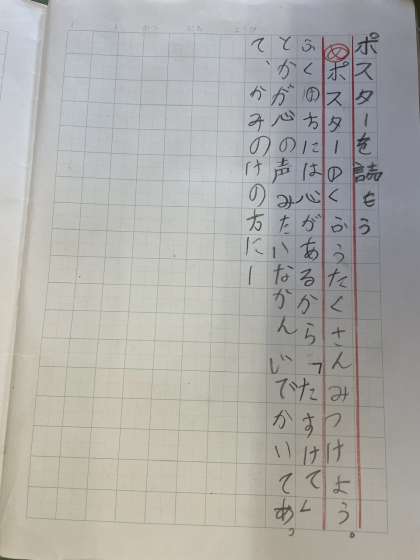 ポスターを読もう
めポスターのくふうたくさんみつけよう。
ふくの方には心があるから「たすけて」
とかが心の声みたいなかんじでかいてあっ
て、かみのけの方に